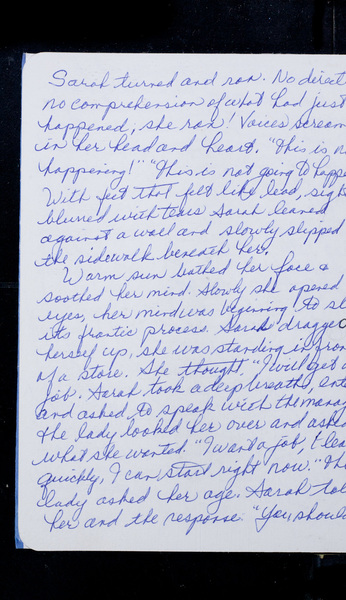 Sarah turned and ran. No direct
no comprehension of what had just
happened, she ran! Voices scream
in her head and heart. "This is n
happening!" "This is not going to happe
With feet that felt like lead, sigh
blurred with tears Sarah leaned
against a wall and slowly slipped
the sidewalk beneath her.
Warm sun bathed her face &
soothed her mind. Slowly she opened
eyes, her mind was beginning to sl
its frantic process. Sarah dragged
herself up, she was standing in fron
of a store. She thought, "I will get a
job. Sarah took a deep breath, ent
and asked to speak with the manag
the lady looked her over and asked
what she wanted. "I want a job, I lea
quickly, I can start right now." Th
lady asked her age. Sarah tol
her and the response. "You, shoul